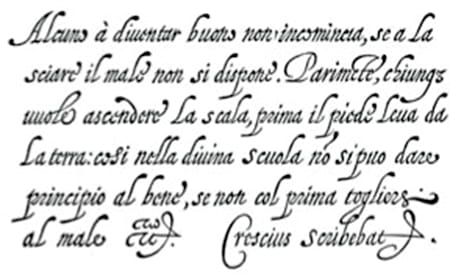 Alcuno à diuentar buono non incomincia, se a la
sciare il male non si dispone. Parimēte, chiunqȝ
uuole ascendere la scala, prima il piede leua da
la terra: cosi nella diuina scuola nō si puo dare
principio al bene, se non col prima togliers
al male Crescius scribebat